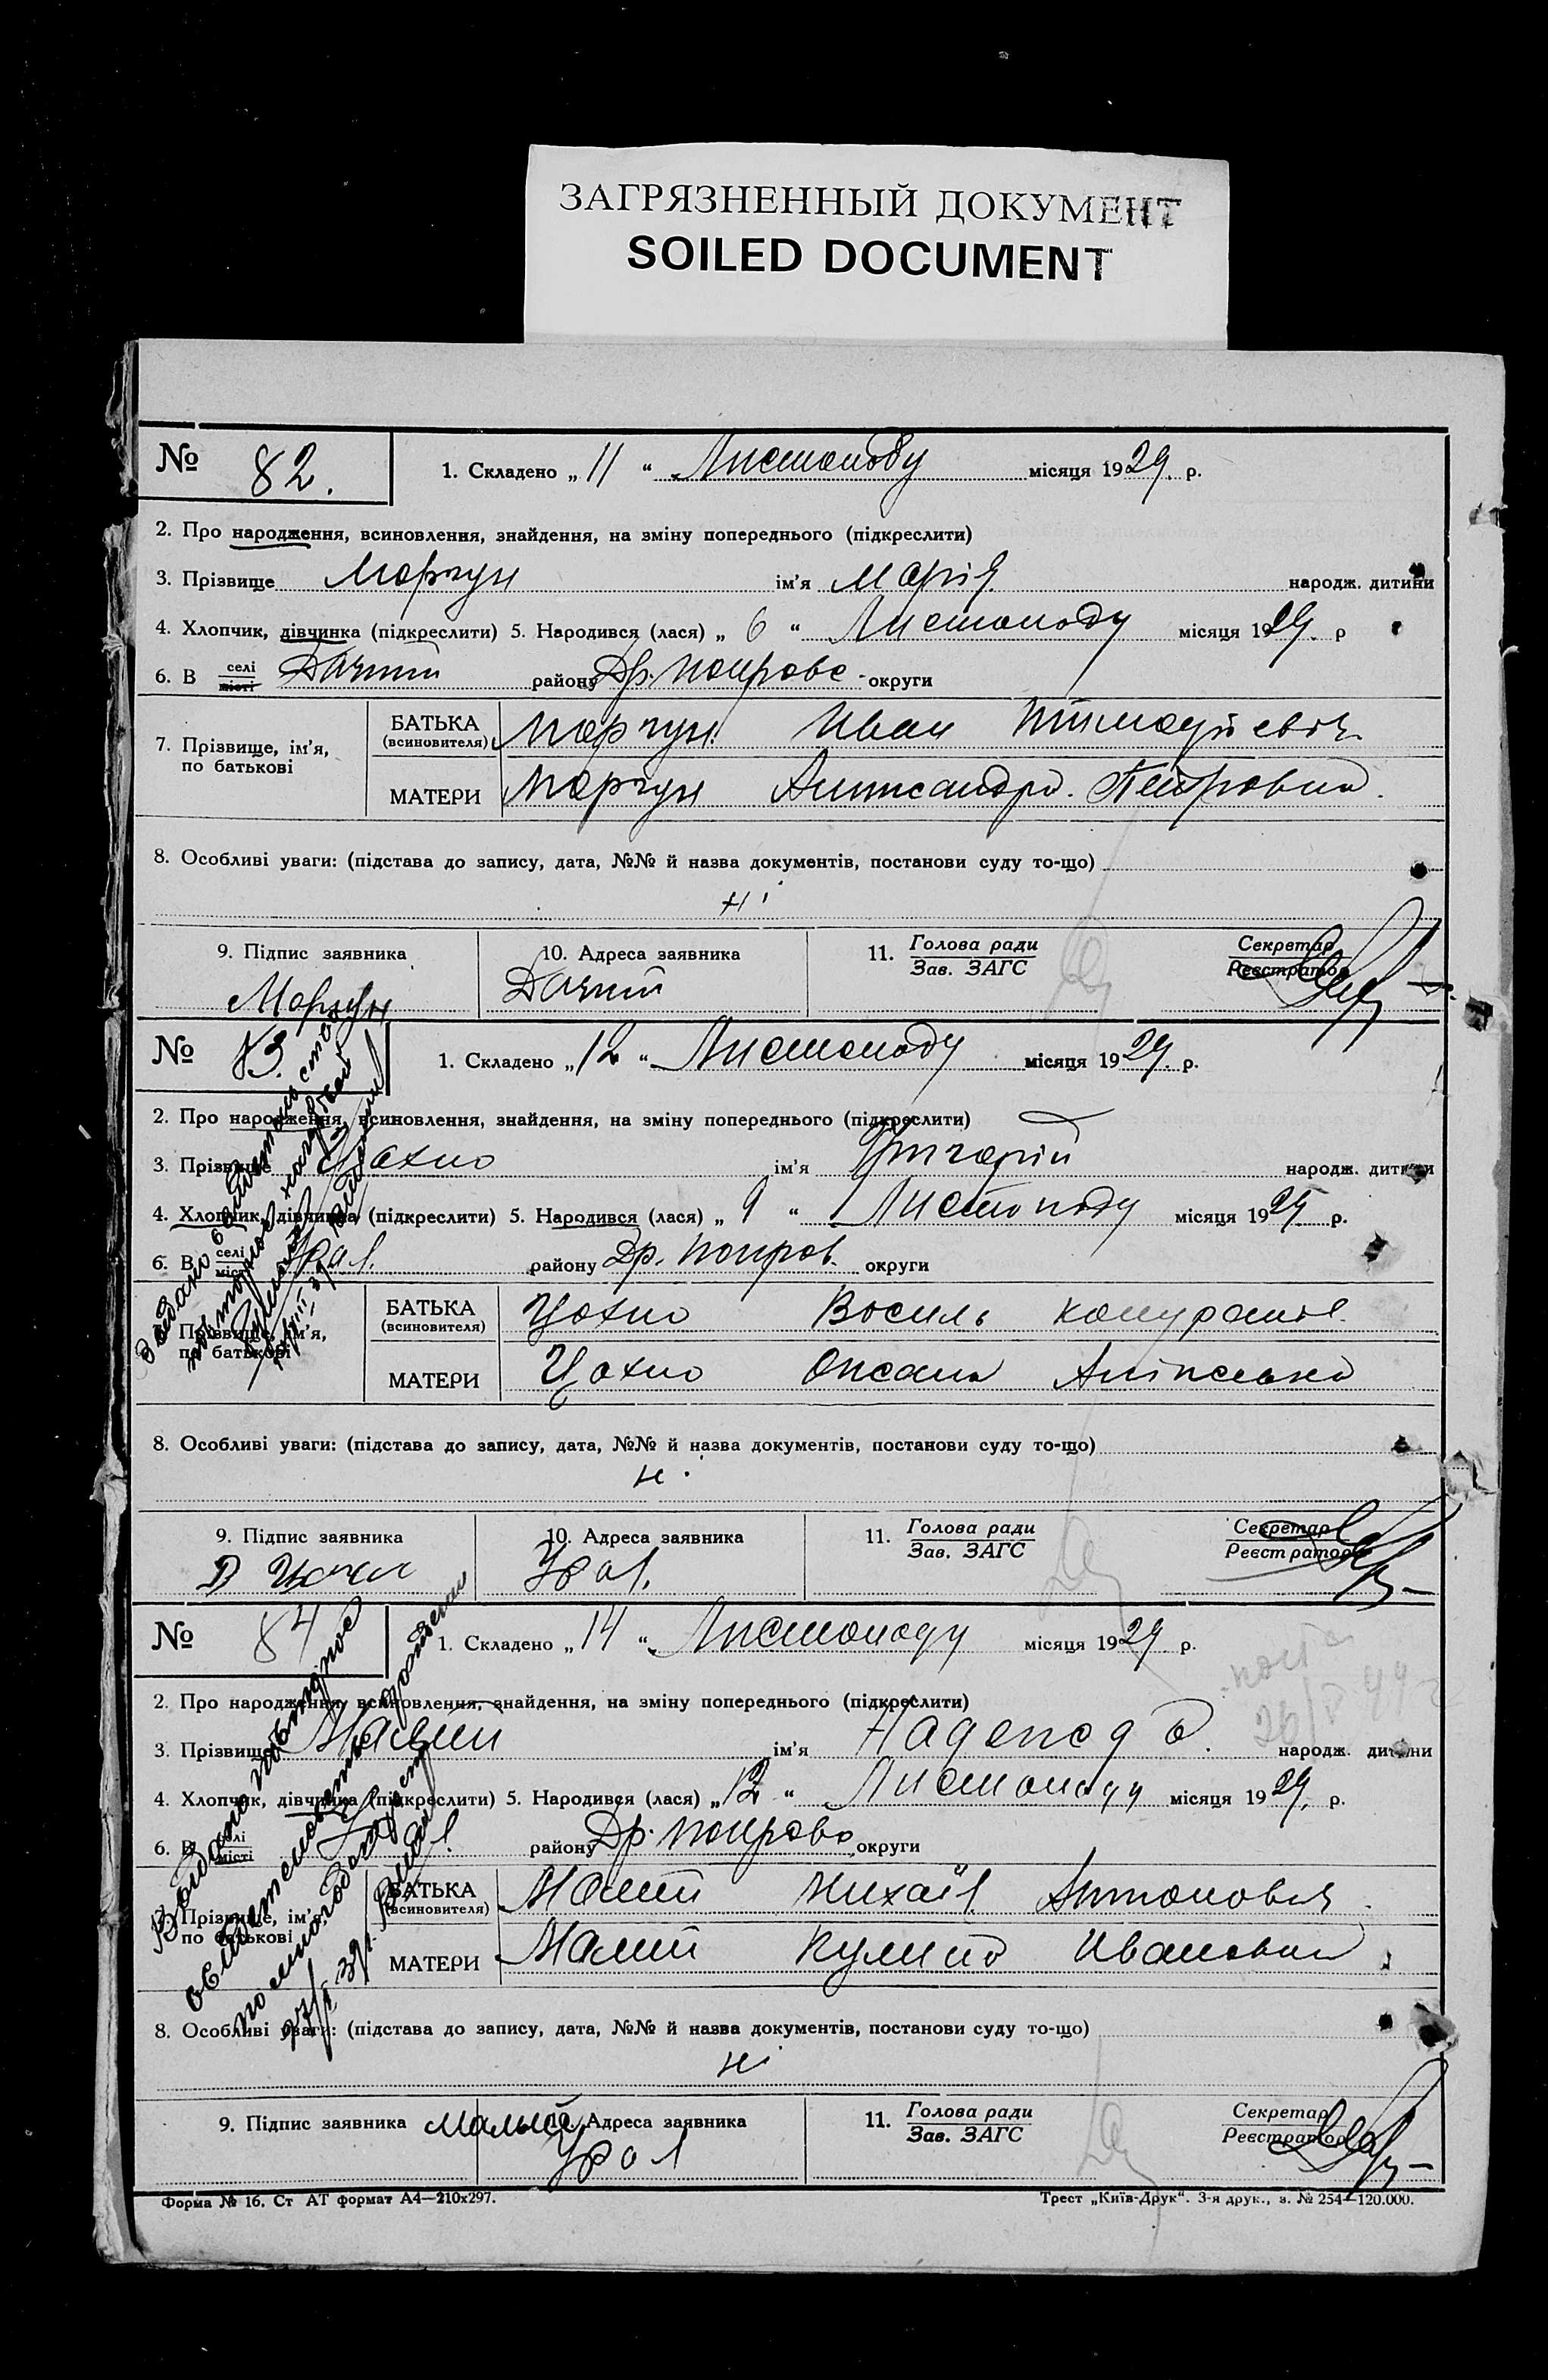 ЗАГРЯЗНЕННЫЙ ДОКУМЕНТ
SOILED DOCUMENT
№ 82. 1. Складено „11“ Листопаду місяця 1929 р.
2. Про народження, всиновлення, знайдення, на зміну попереднього (підкреслити)
3. Прізвище Моргун ім'я Марія народж. дитини
4. Хлопчик, дівчинка (підкреслити) 5. Народився (лася) „6“ Листопаду місяця 1929. р
6. В селі місті району Др. Покровс. округи
7. Прізвище, ім'я, по батькові
БАТЬКА (всиновителя) Моргун Иван
МАТЕРИ Моргун Петровна.
8. Особливі уваги: (підстава до запису, дата, №№ й назва документів, постанови суду то-що)
ні
9. Підпис заявника 10. Адреса заявника 11. Голова ради Зав. ЗАГС Секретар Реєстратор
Моргун
№ 83. 1. Складено „12“ Листопаду місяця 1929. р.
2. Про народження, всиновлення, знайдення, на зміну попереднього (підкреслити)
3. Прізвище Цахно ім'я Григорій народж. дитини
4. Хлопчик, дівчинка (підкреслити) 5. Народився (лася) „9“ Листопаду місяця 1929 р.
6. В селі місті Урал. району Др. Покров. округи
7. Прізвище, ім'я, по батькові
БАТЬКА (всиновителя) Цахно Василь
МАТЕРИ Цахно Оксана
8. Особливі уваги: (підстава до запису, дата, №№ й назва документів, постанови суду то-що)
ні
9. Підпис заявника 10. Адреса заявника 11. Голова ради Зав. ЗАГС Секретар Реєстратор
Урал.
№ 84 1. Складено „14“ Листопаду місяця 1929. р.
2. Про народження, всиновлення, знайдення, на зміну попереднього (підкреслити)
3. Прізвище Малий ім'я народж. дитини
4. Хлопчик, дівчинка (підкреслити) 5. Народився (лася) „12“ Листопаду місяця 1929. р.
6. В селі місті району Др. Покровс округи
7. Прізвище, ім'я, по батькові
БАТЬКА (всиновителя) Малий Михаіл Антонович.
МАТЕРИ Малий Кулина Ивановна
8. Особливі уваги: (підстава до запису, дата, №№ й назва документів, постанови суду то-що)
ні
9. Підпис заявника 10. Адреса заявника 11. Голова ради Зав. ЗАГС Секретар Реєстратор
Малый Урал
Форма № 16. Ст АТ формат А4—210х297. Трест „Київ-Друк“. 3-я друк., з. № 254—120.000.